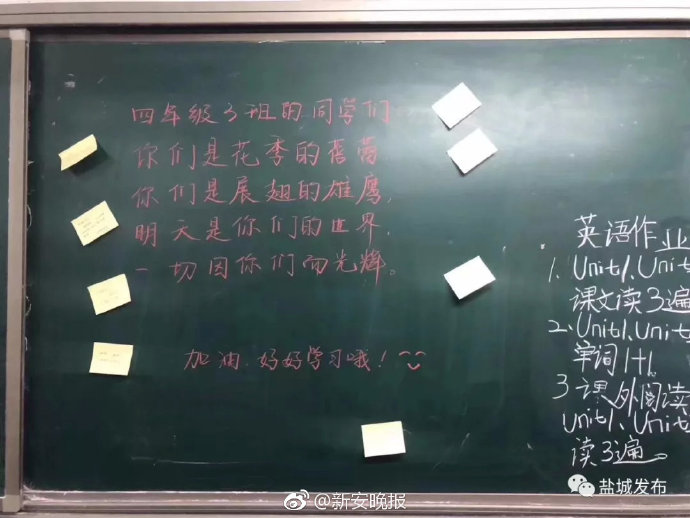 四年级3班的同学们
你们是花季的蓓蕾
你们是展翅的雄鹰,
明天是你们的世界.
一切因你们而光辉。
加油.好好学习哦!
英语作业
1、Unit1、Unit
课文读3遍
2、Unit1、Unit
单词1+1
3课外阅读
Unit1、Unit
读3遍。
盐城发布
@新安晚报